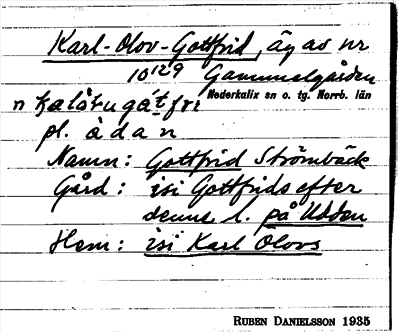 Karl-Olov-Gottfrid, äg av nr
10¹²9 Gammelgården
Nederkalix sn o. tg. Norrb. län
pl. å d a n
Namn: Gottfrid Strömbäck
Gård: isi Gottfrids efter
denne, l. på Udden
Hem: isi Karl Olovs
RUBEN DANIELSSON 1935